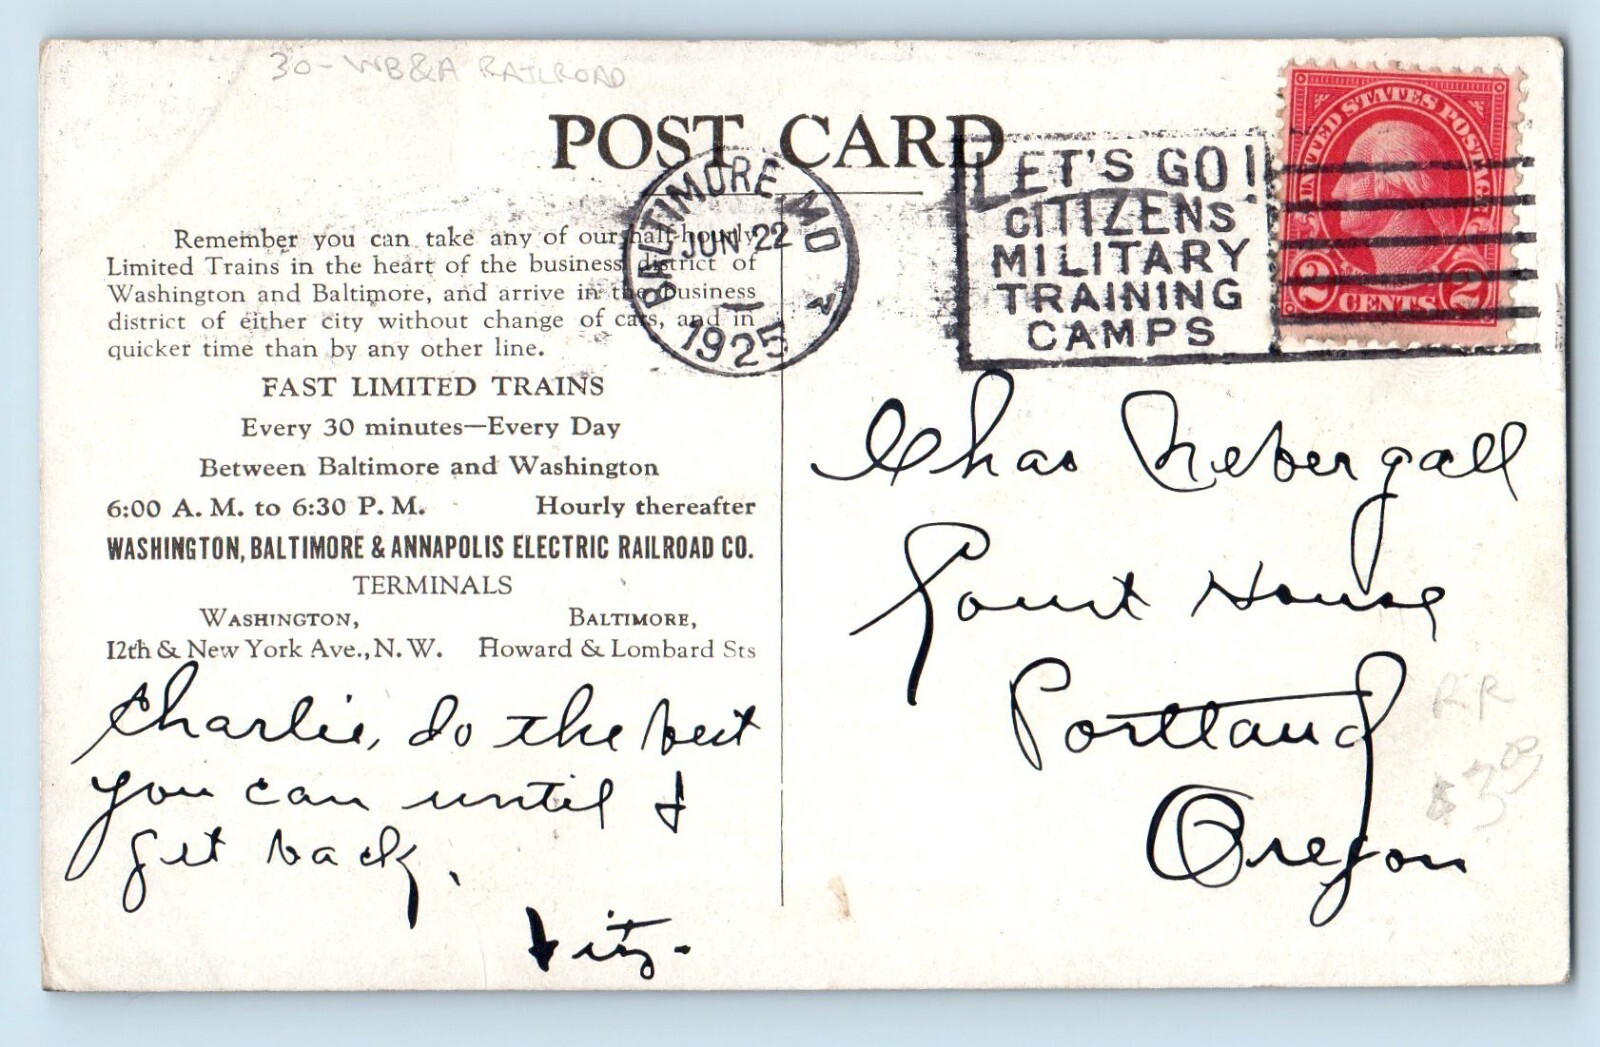 30 - WB&A RAILROAD
POST CARD
BALTIMORE, MD
JUN 22
1925
LET'S GO!
CITIZENS
MILITARY
TRAINING
CAMPS
UNITED STATES POSTAGE
2 CENTS 2
Remember you can take any of our half-hourly
Limited Trains in the heart of the business district of
Washington and Baltimore, and arrive in the business
district of either city without change of cars, and in
quicker time than by any other line.
FAST LIMITED TRAINS
Every 30 minutes—Every Day
Between Baltimore and Washington
6:00 A. M. to 6:30 P. M. Hourly thereafter
WASHINGTON, BALTIMORE & ANNAPOLIS ELECTRIC RAILROAD CO.
TERMINALS
WASHINGTON, BALTIMORE,
12th & New York Ave., N. W. Howard & Lombard Sts
Charlie, do the best
you can until I
get back.
Fitz.
Chas Nebergall
Court House
Portland
Oregon
RR
$3.00